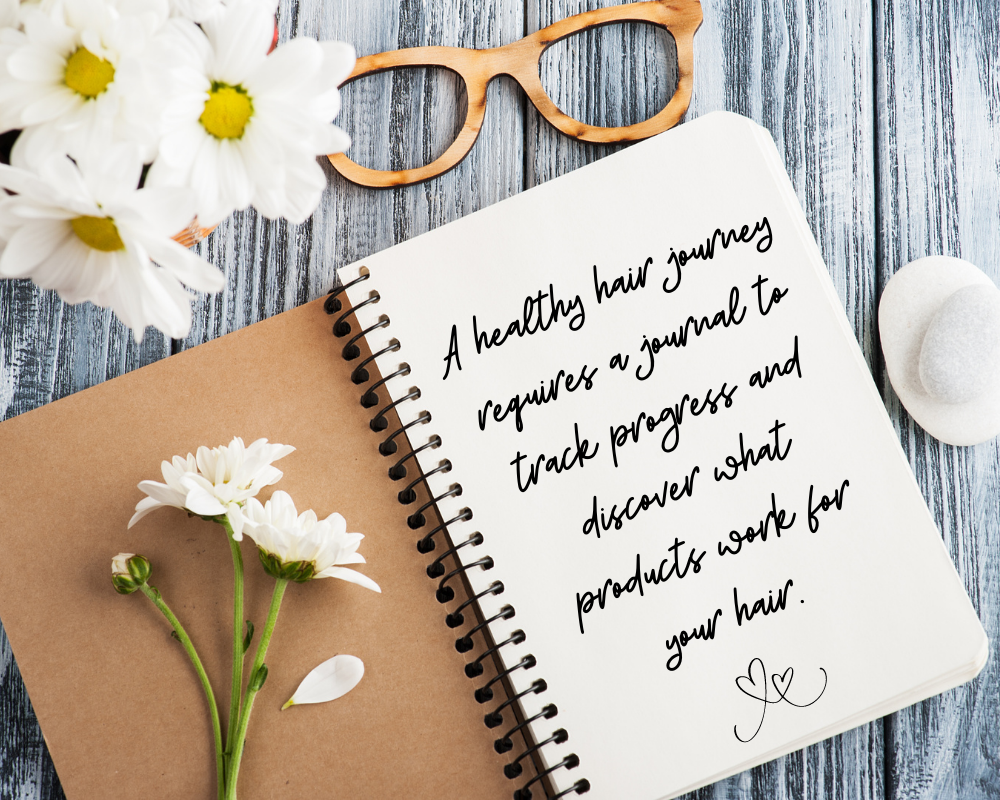 A healthy hair journey
requires a journal to
track progress and
discover what
products work for
your hair.